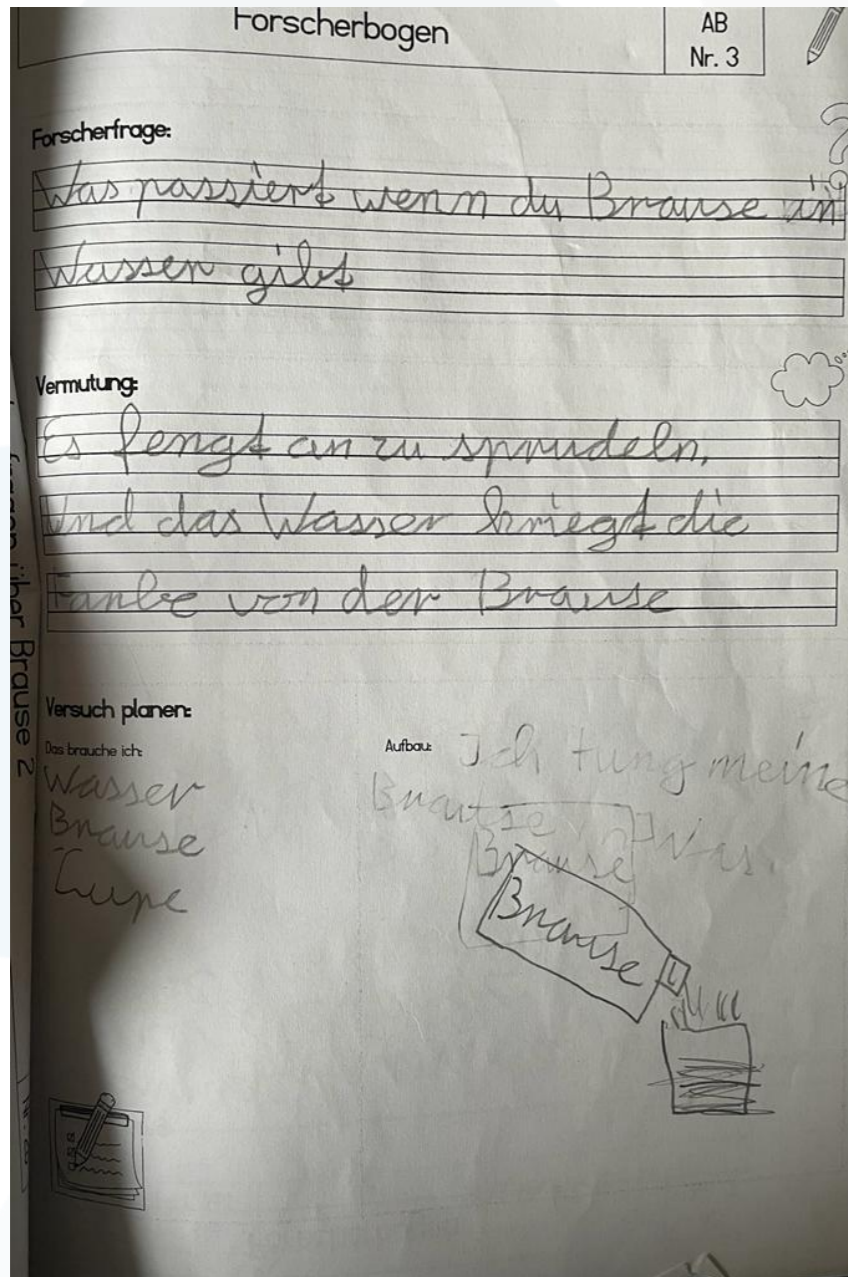 Forscherbogen
AB
Nr. 3
Forscherfrage:
Was passiert wenn du Brause in
Wasser gibt
Vermutung:
Es fengt an zu sprudeln,
Und das Wasser kriegt die
Farbe von der Brause
Versuch planen:
Das brauche ich:
Wasser
Brause
Lupe
Aufbau:
Ich tung meine
Brause in Was.
Brause
Brause
über Brause 2